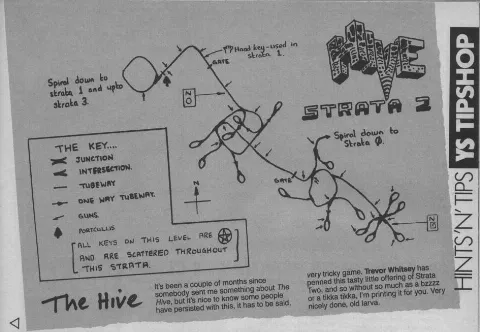 Hood key-used in
strata 1.
GATE
Spiral down to
strata 1 and upto
strata 3.
HIVE
STRATA 2
Spiral down to
Strata 0.
GATE
N
THE KEY....
JUNCTION
INTERSECTION.
TUBEWAY
ONE WAY TUBEWAY.
GUNS
PORTCULLIS
ALL KEYS ON THIS LEVEL ARE
AND ARE SCATTERED THROUGHOUT
THIS STRATA.
The Hive
It's been a couple of months since
somebody sent me something about The
Hive, but it's nice to know some people
have persisted with this, it has to be said,
very tricky game. Trevor Whitsey has
penned this tasty little offering of Strata
Two, and so without so much as a bzzzz
or a tikka tikka, I'm printing it for you. Very
nicely done, old larva.
HINTS'N'TIPS YS TIPSHOP